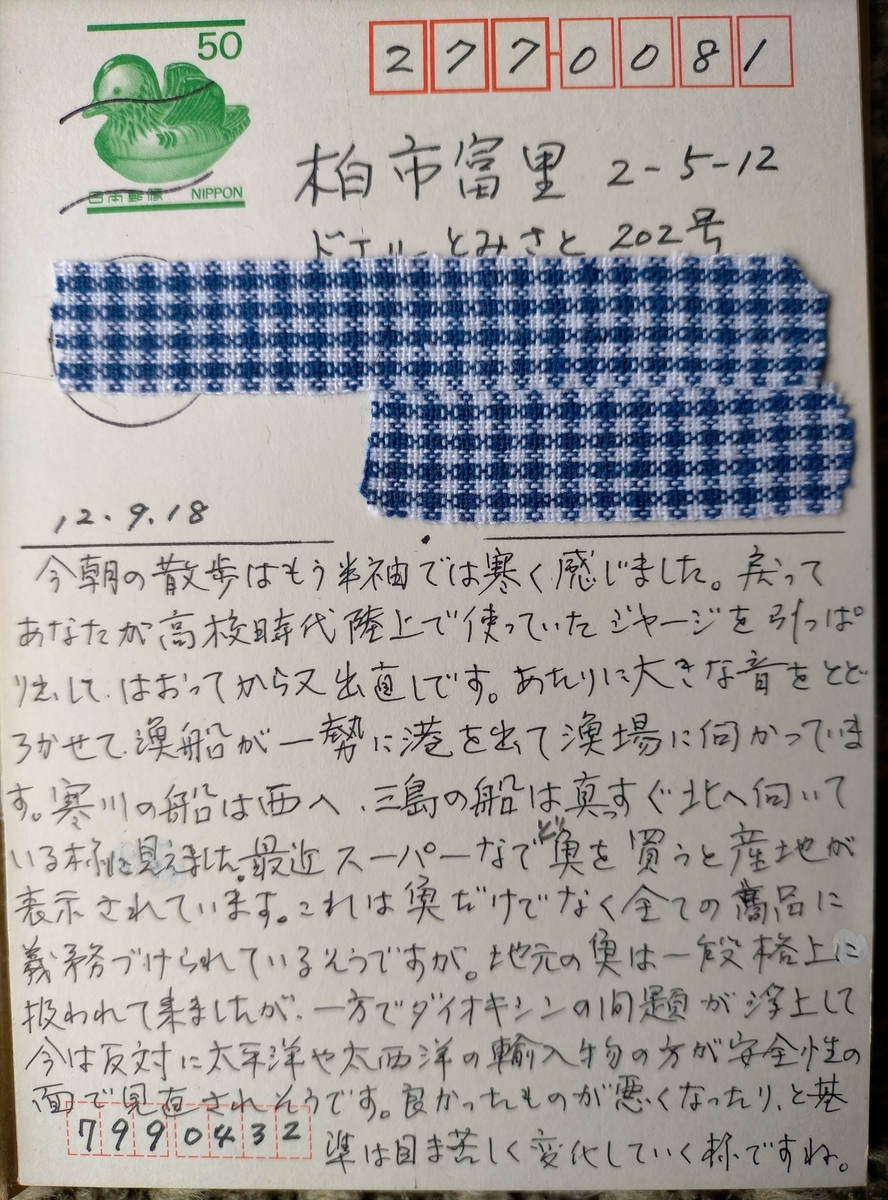 50
日本郵便 NIPPON
2770081
柏市富里 2-5-12
とみさと 202号
12.9.18
今朝の散歩はもう半袖では寒く感じました。戻って
あなたが高校時代陸上で使っていたジャージを引っぱ
り出して、はおってから又出直しです。あたりに大きな音をとど
ろかせて、漁船が一勢に港を出て漁場に向かっていま
す。寒川の船は西へ、三島の船は真っすぐ北へ向いて
いる様に見えました。最近スーパーなどで魚を買うと産地が
表示されています。これは魚だけでなく全ての商品に
義務づけられているそうですが。地元の魚は一段格上に
扱われて来ましたが、一方でダイオキシンの問題が浮上して
今は反対に太平洋や大西洋の輸入物の方が安全性の
面で見直されそうです。良かったものが悪くなったり、と基
準は目ま苦しく変化していく様ですね。
7990432